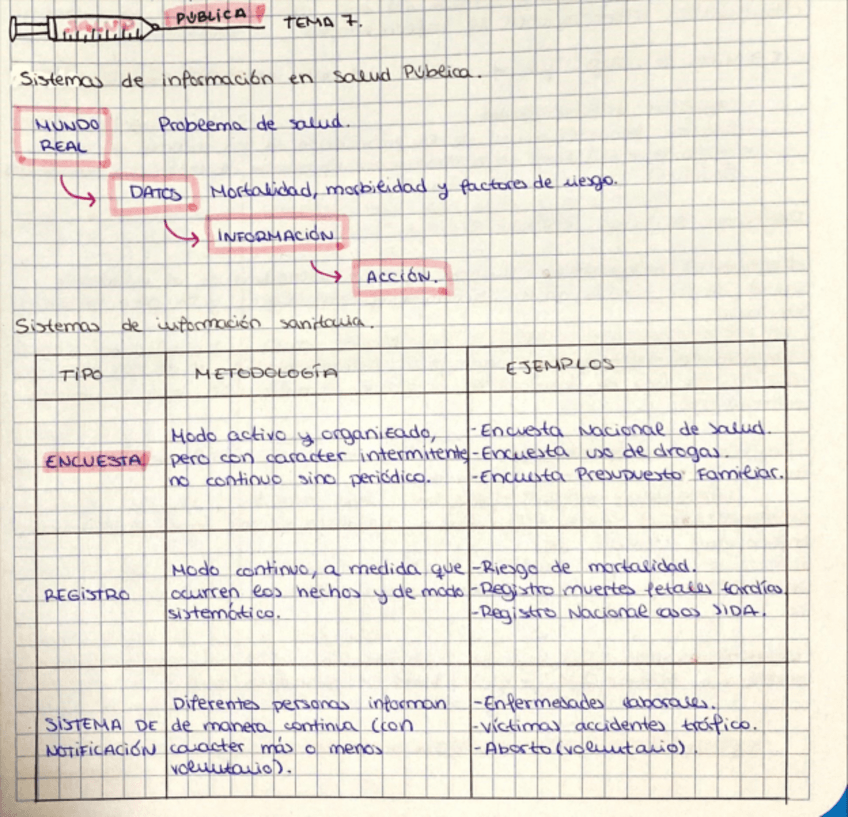 SALUD PÚBLICA TEMA 7.
Sistemas de información en salud Pública.
MUNDO REAL Problema de salud.
DATOS Mortalidad, morbilidad y factores de riesgo.
INFORMACIÓN
ACCIÓN.
Sistemas de información sanitaria.
TIPO METODOLOGÍA EJEMPLOS
ENCUESTA
Modo activo y organizado,
pero con caracter intermitente
no continuo sino periódico.
-Encuesta Nacional de salud.
-Encuesta uso de drogas.
-Encuesta Presupuesto Familiar.
REGISTRO
Modo continuo, a medida que
ocurren los hechos y de modo
sistemático.
-Riesgo de mortalidad.
-Registro muertes fetales tardías
-Registro Nacional casos SIDA.
SISTEMA DE
NOTIFICACIÓN
Diferentes personas informan
de manera continua (con
caracter más o menos
voluntario).
-Enfermedades laborales.
-Víctimas accidentes tráfico.
-Aborto (voluntario).